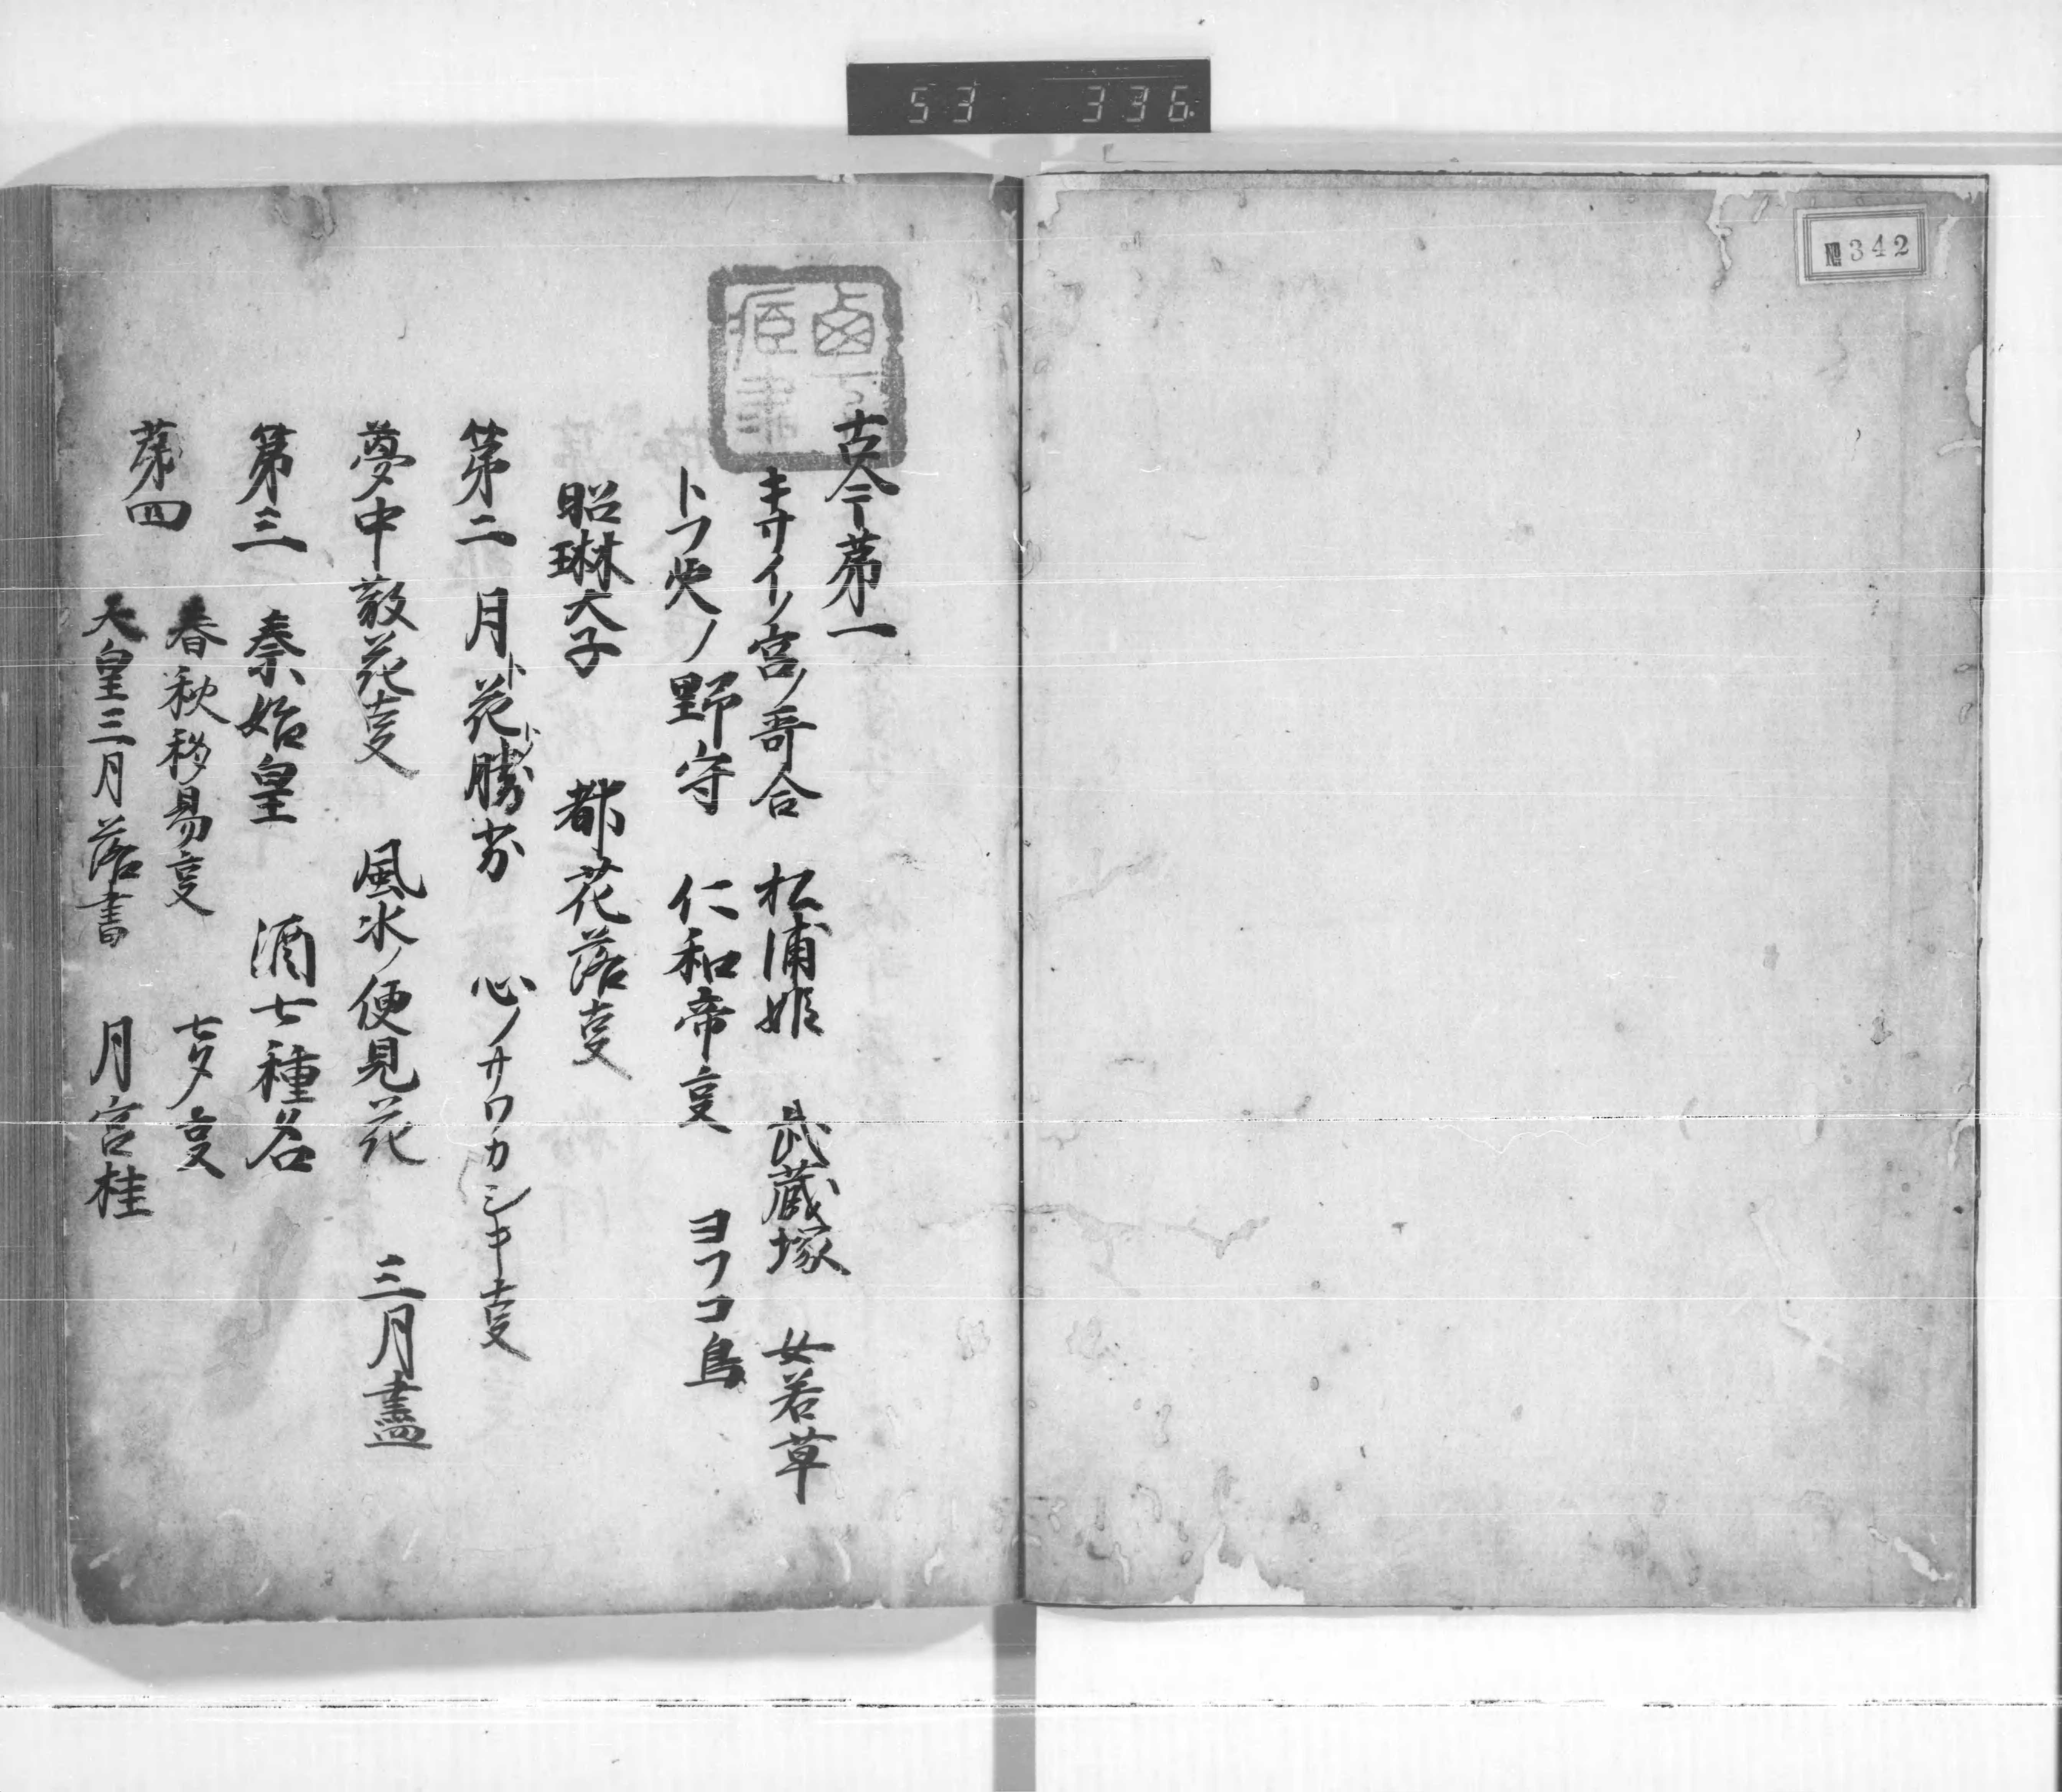 53 336
№342
古今第一
キサイノ宮ノ哥合 松浦姫 武蔵塚 女若草
トフ火ノ野守 仁和帝㕝 ヨフコ鳥
昭琳太子 都花落㕝
第二 月ト花ト勝劣 心ノサワカシキ㕝
夢中散花㕝 風氷ノ便見花 三月盡
第三 秦始皇 酒七種名
第四
春秋移易㕝 七夕㕝
天皇三月落書 月宮桂